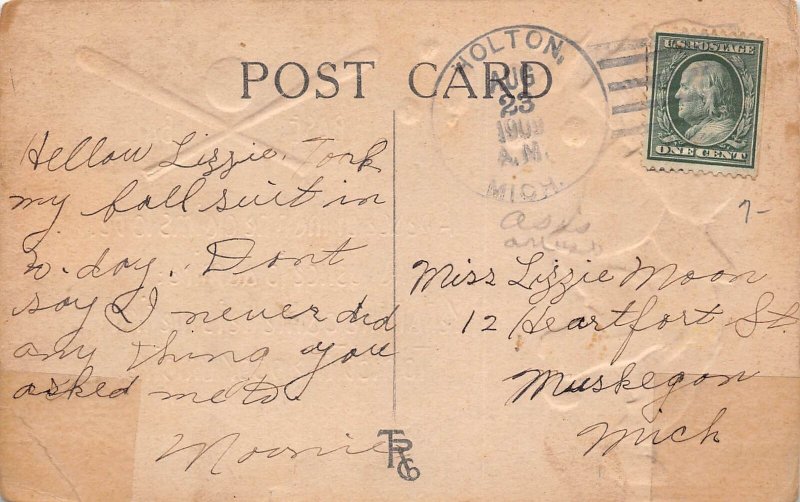 POST CARD
HOLTON,
AUG
23
1909
A.M.
MICH.
U.S. POSTAGE
ONE CENT
7-
as is
Hellow Lizzie. Took
my ball suit in
to-day. Dont
say I never did
any thing you
asked me to.
Moonie
Miss Lizzie Moon
12 Heartfort St.
Muskegon
Mich